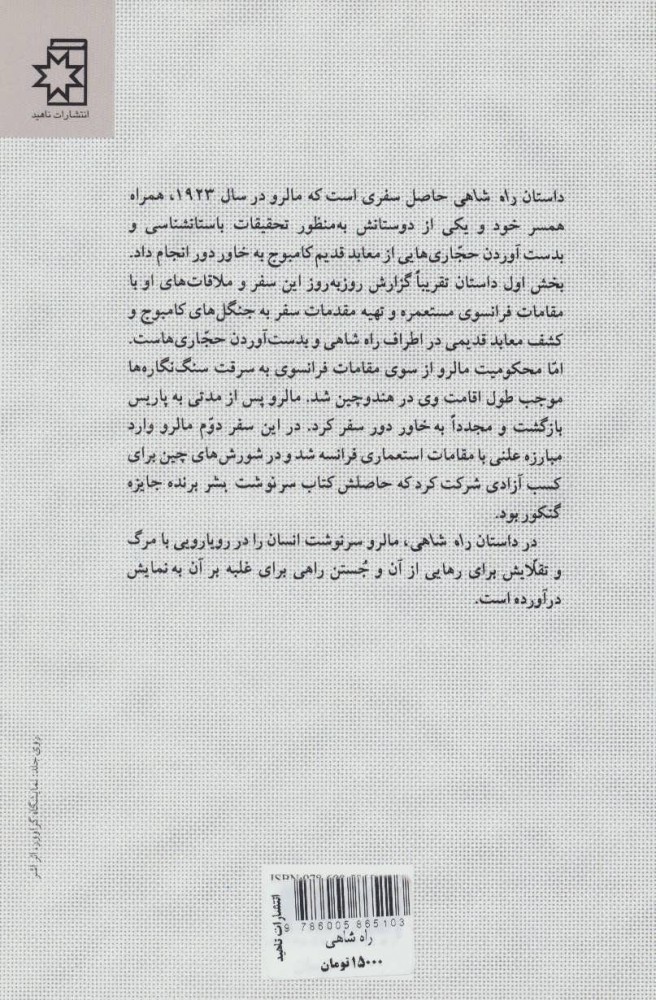 انتشارات ناهید
داستان راه شاهی حاصل سفری است که مالرو در سال ۱۹۲۳، همراه
همسر خود و یکی از دوستانش به‌منظور تحقیقات باستانشناسی و
بدست آوردن حجّاری‌هایی از معابد قدیم کامبوج به خاور دور انجام داد.
بخش اول داستان تقریباً گزارش روزبه‌روز این سفر و ملاقات‌های او با
مقامات فرانسوی مستعمره و تهیه مقدمات سفر به جنگل‌های کامبوج و
کشف معابد قدیمی در اطراف راه شاهی و بدست‌آوردن حجاری‌هاست.
امّا محکومیت مالرو از سوی مقامات فرانسوی به سرقت سنگ‌نگاره‌ها
موجب طول اقامت وی در هندوچین شد. مالرو پس از مدتی به پاریس
بازگشت و مجدداً به خاور دور سفر کرد. در این سفر دوّم مالرو وارد
مبارزه علنی با مقامات استعماری فرانسه شد و در شورش‌های چین برای
کسب آزادی شرکت کرد که حاصلش کتاب سرنوشت بشر برنده جایزه
گنکور بود.
در داستان راه شاهی، مالرو سرنوشت انسان را در رویارویی با مرگ
و تقلّایش برای رهایی از آن و جُستن راهی برای غلبه بر آن به نمایش
درآورده است.
روی جلد: نمایشگاه گراوور، اثر
ISBN 978
انتشارات ناهید
9 786005 865103
راه شاهی
۱۵۰۰۰تومان